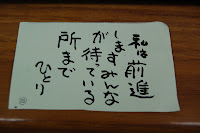 私は前進
しますみんな
が待っている
所まで
ひとり